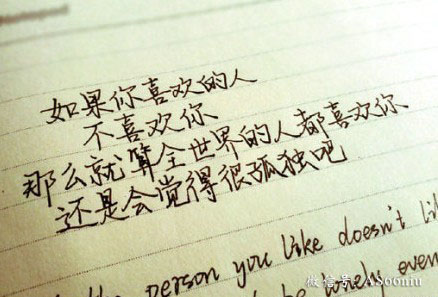 如果你喜欢的人
不喜欢你
那么就算全世界的人都喜欢你
还是会觉得很孤独吧
person you like doesn't li
lonely even
微信号: ASooniu